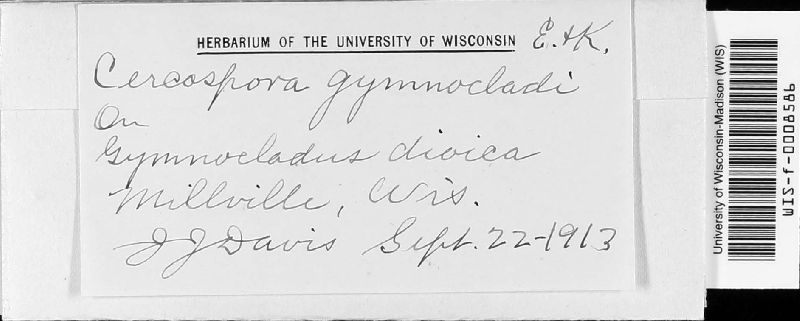 HERBARIUM OF THE UNIVERSITY OF WISCONSIN E. & K.
Cercospora gymnocladi
On
Gymnocladus dioica
Millville, Wis.
J J Davis Sept. 22-1913
University of Wisconsin-Madison (WIS)
WIS-f-0008586